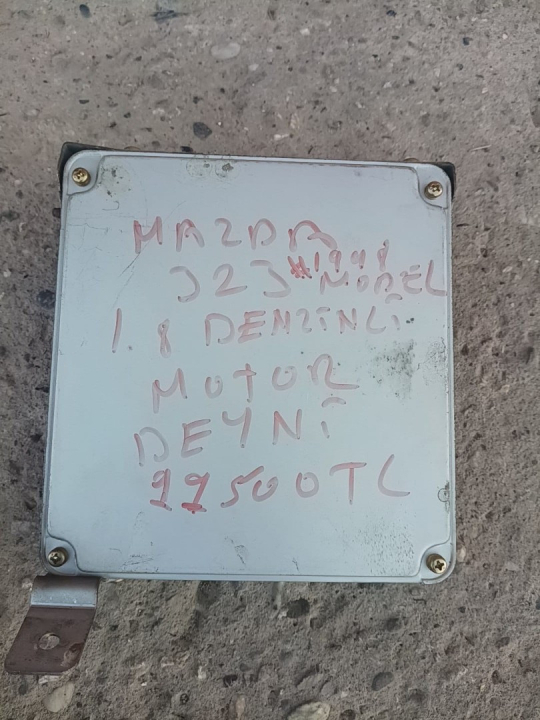 MAZDA
323 #1998 MODEL
1.8 BENZİNLİ
MOTOR
BEYNİ
22500TL